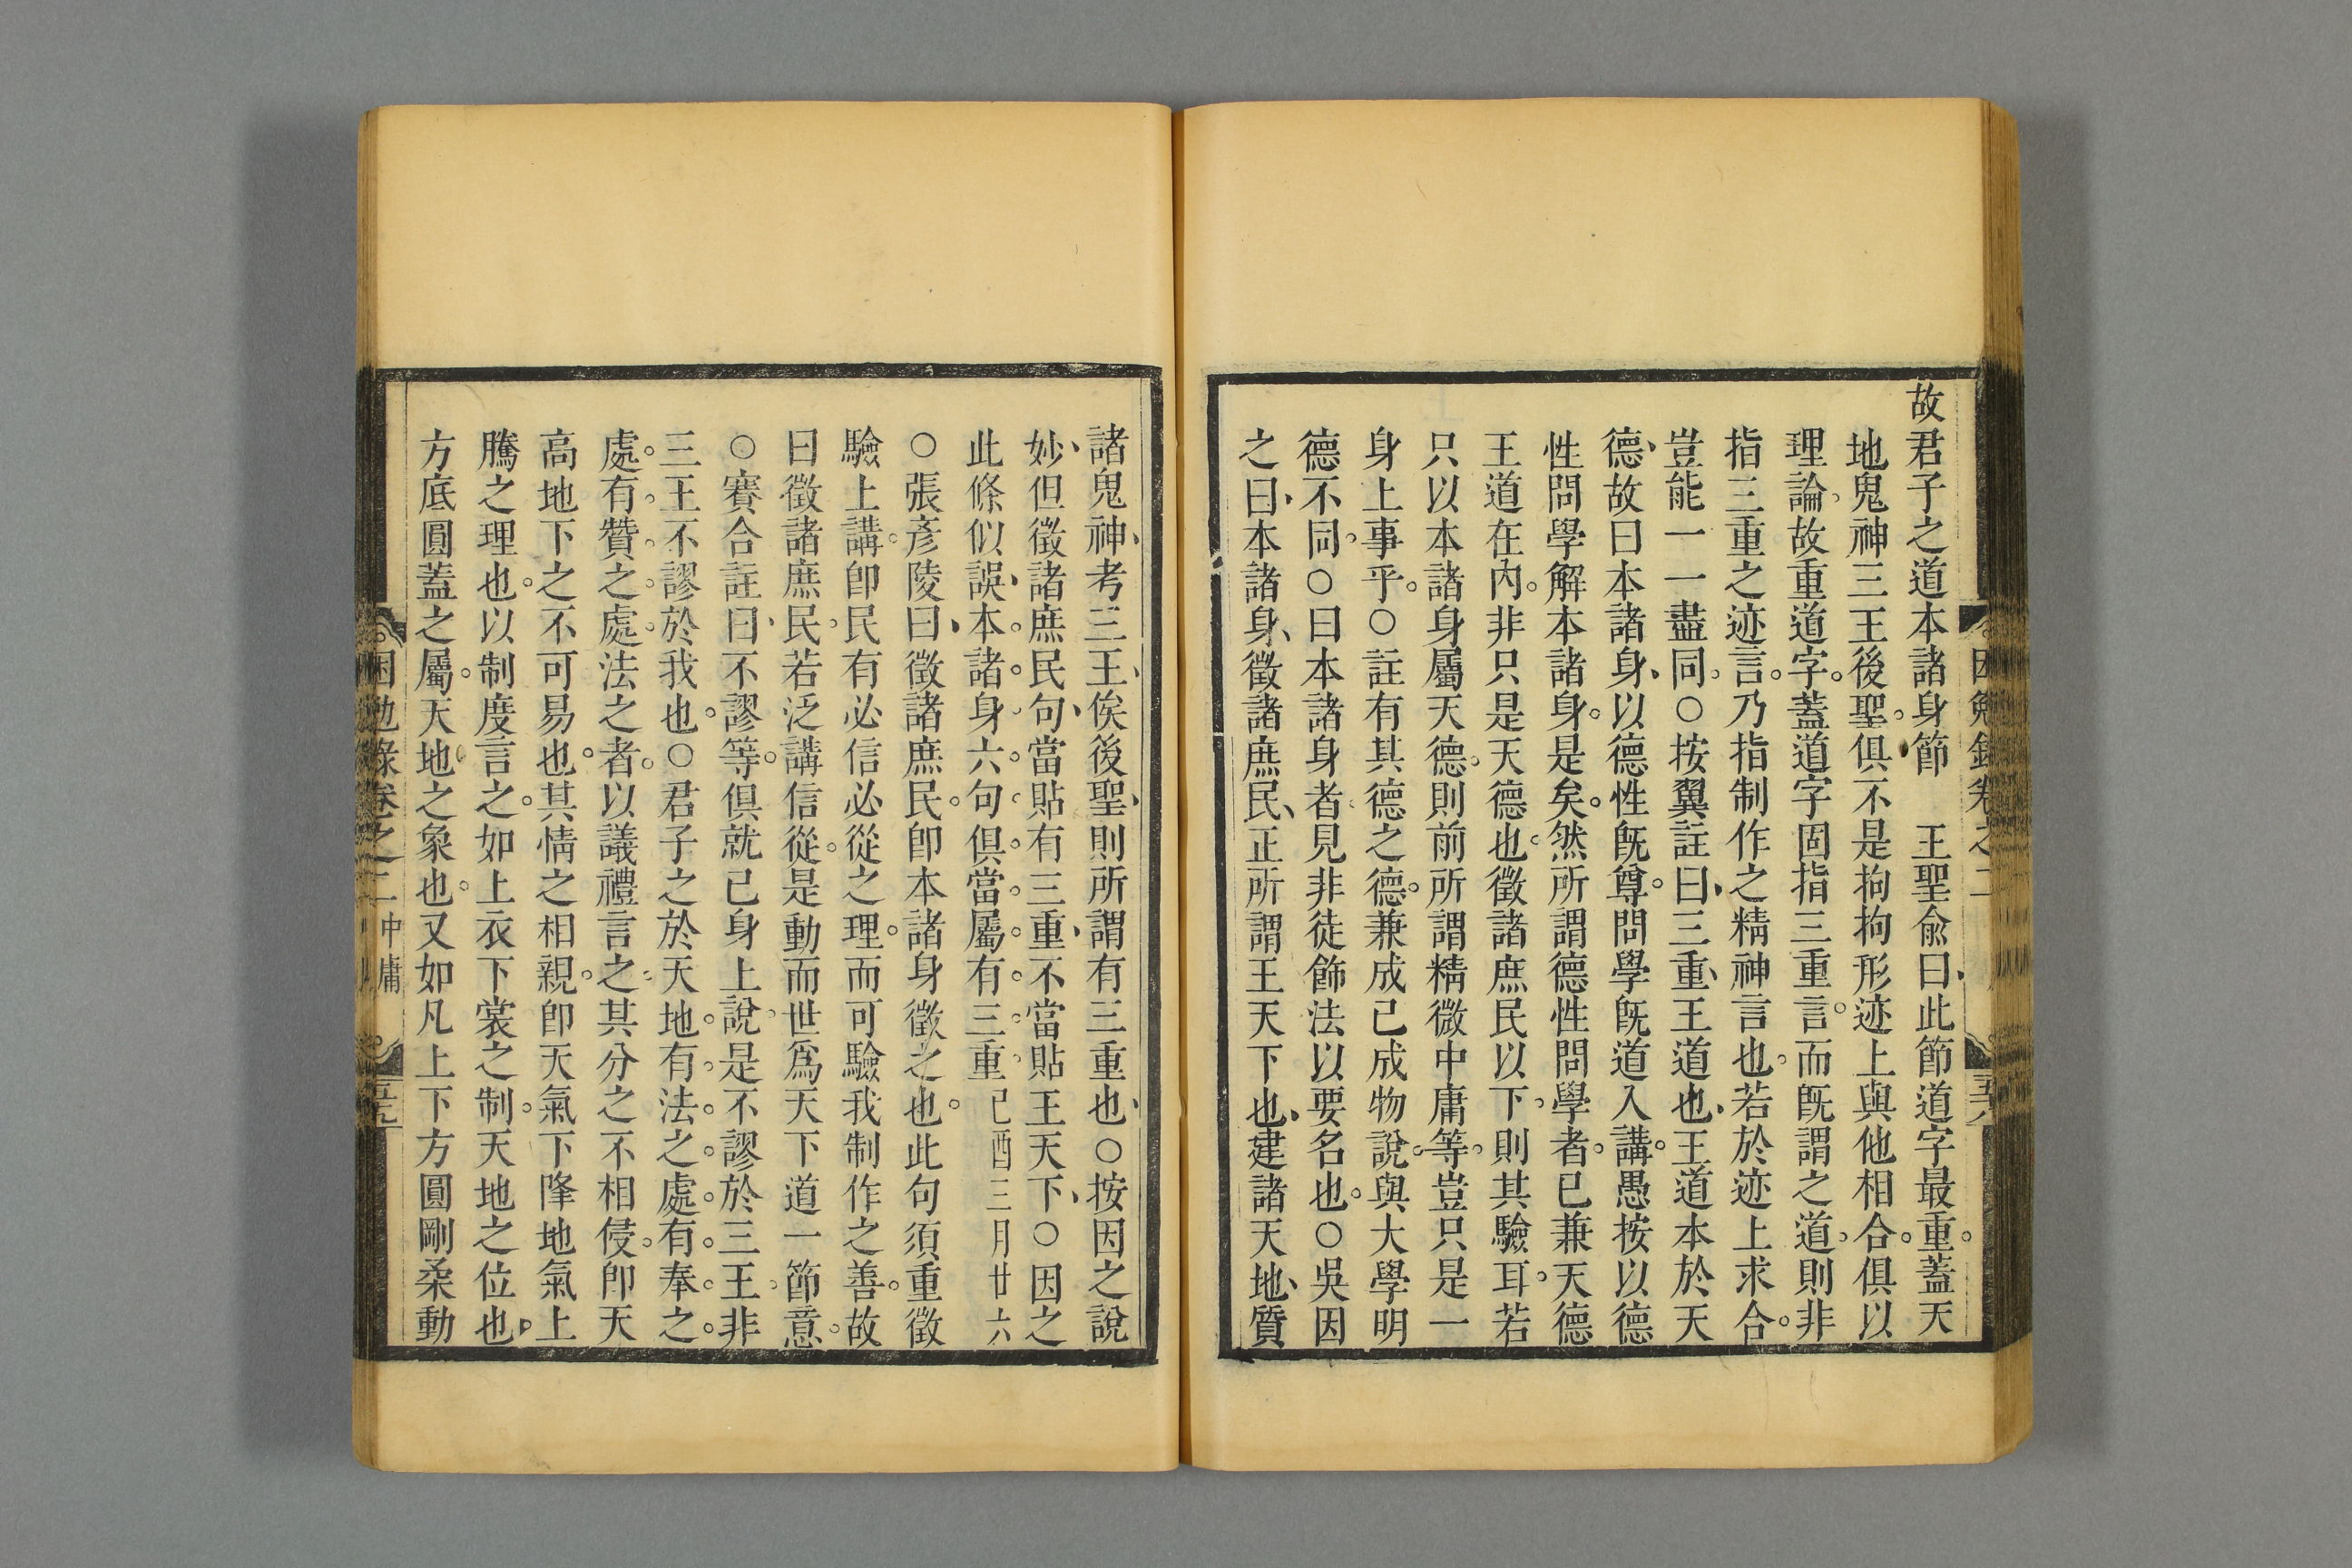 故君子之道本諸身節　王聖俞曰此節道字最重蓋天
地鬼神三王後聖俱不是拘拘形迹上與他相合俱以
理論故重道字蓋道字固指三重言而旣謂之道則非
指三重之迹言乃指制作之精神言也若於迹上求合
豈能一一盡同○按翼註曰三重王道也王道本於天
德故曰本諸身以德性旣尊問學旣道入講愚按以德
性問學解本諸身是矣然所謂德性問學者已兼天德
王道在內非只是天德也徵諸庶民以下則其驗耳若
只以本諸身屬天德則前所謂精微中庸等豈只是一
身上事乎○註有其德之德兼成己成物說與大學明
德不同○曰本諸身者見非徒飾法以要名也○吳因
之曰本諸身徵諸庶民正所謂王天下也建諸天地質
諸鬼神考三王俟後聖則所謂有三重也○按因之說
妙但徵諸庶民句當貼有三重不當貼王天下○因之
此條似誤本諸身六句俱當屬有三重己酉三月廿六
○張彥陵曰徵諸庶民卽本諸身徵之也此句須重徵
驗上講卽民有必信必從之理而可驗我制作之善故
曰徵諸庶民若泛講信從是動而世爲天下道一節意
○賽合註曰不謬等俱就己身上說是不謬於三王非
三王不謬於我也○君子之於天地有法之處有奉之
處有贊之處法之者以議禮言之其分之不相侵卽天
高地下之不可易也其情之相親卽天氣下降地氣上
騰之理也以制度言之如上衣下裳之制天地之位也
方底圓蓋之屬天地之象也又如凡上下方圓剛柔動
困勉錄卷之二 中庸 五九